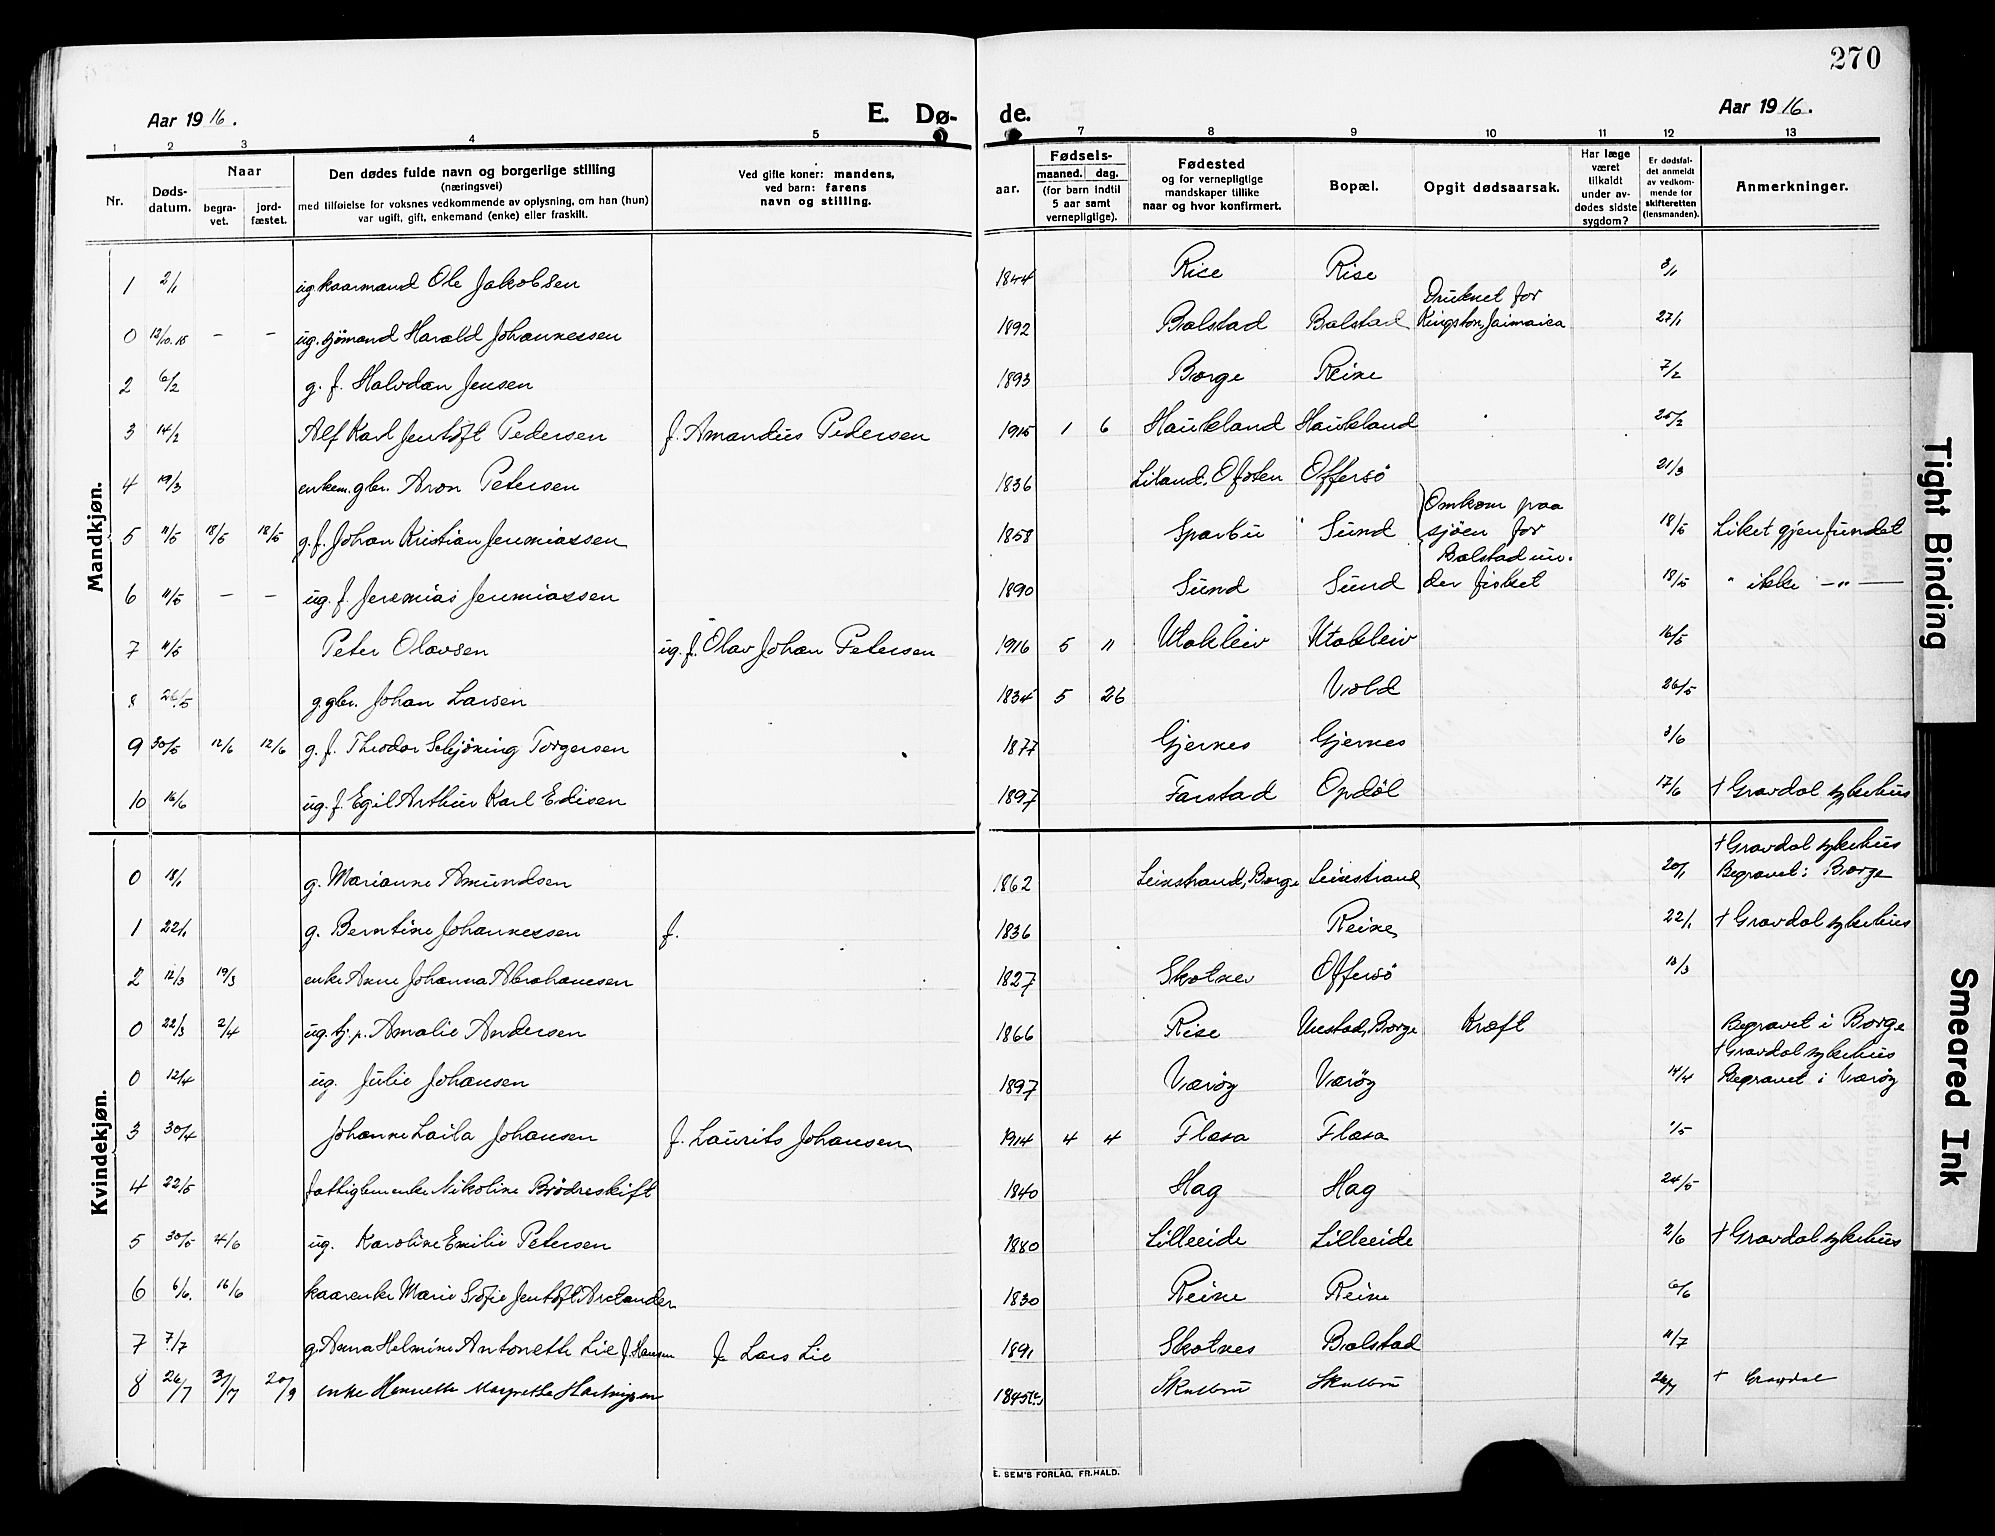 270
Aar 1916.
E. Dø-
de.
Aar 1916.
1 2 3 4 5 7 8 9 10 11 12 13
Nr.
Døds-
datum.
Naar
begra-
vet.
jord-
fæstet.
Den dødes fulde navn og borgerlige stilling
(næringsvei)
med tilføielse for voksnes vedkommende av oplysning, om han (hun)
var ugift, gift, enkemand (enke) eller fraskilt.
Ved gifte koner: mandens,
ved barn: farens
navn og stilling.
aar.
Fødsels-
maaned. dag.
(for barn indtil
5 aar samt
vernepligtige).
Fødested
og for vernepligtige
mandskaper tillike
naar og hvor konfirmert.
Bopæl.
Opgit dødsaarsak.
Har læge
været
tilkaldt
under av-
dødes sidste
sygdom?
Er dødsfal-
det anmeldt
av vedkom-
mende for
skifteretten
(lensmanden).
Anmerkninger.
Mandkjøn.
1 2/1 ug. kaarmand Ole Jakobsen 1844 Rise Rise 3/1
0 12/10.15 - - ug. sjömand Harald Johannessen 1892 Balstad Balstad Druknet for Kingston, Jaimaica 27/1
2 6/2 g. f. Halvdan Jensen 1893 Borge Reine 7/2
3 14/2 Alf Karl Jentoft Pedersen f. Amandus Pedersen 1915 1 6 Haukland Haukland 25/2
4 19/3 enkem. gbr. Aron Petersen 1836 Liland, Ofoten Offersö 21/3
5 11/5 18/5 18/5 g. f. Johan Kristian Jeremiassen 1858 Sparbu Sund Omkom paa sjöen for Balstad un- 18/5 Liket gjenfundet
6 11/5 - - ug. f. Jeremias Jeremiassen 1890 Sund Sund der fisket 18/5 " ikke -"-
7 11/5 Peter Olavsen ug. f. Olav Johan Petersen 1916 5 11 Utakleiv Utakleiv 16/5
8 26/5 g. gbr. Johan Larsen 1834 5 26 Vold 26/5
9 30/5 12/6 12/6 g. f. Theodor Schjöning Torgersen 1877 Gjernes Gjernes 3/6
10 16/6 ug. f. Egil Arthur Karl Edisen 1897 Farstad Opdöl 17/6 † Gravdal sykehus
Kvindekjøn.
0 18/1 g. Marianne Amundsen 1862 Leinstrand, Borge Leinstrand 20/1 † Gravdal sykehus Begravet i Borge
1 22/1 g. Berntine Johannessen f. 1836 Reine 22/1 † Gravdal sykehus
2 12/3 19/3 enke Anne Johanna Abrahamsen 1827 Skotnes Offersö 13/3
0 22/3 2/4 ug. tj. p. Amalie Andersen 1866 Rise Unstad, Borge Kræft Begravet i Borge
0 12/4 ug. Julie Johansen 1897 Væröy Væröy 14/4 † Gravdal sykehus Begravet i Væröy
3 30/4 Johanne Laila Johansen f. Laurits Johansen 1914 4 4 Flæsa Flæsa 1/5
4 22/5 fattiglem enke Nikoline Brödreskift 1840 Hag Hag 24/5
5 30/5 4/6 ug. Karoline Emilie Petersen 1880 Lilleeide Lilleeide 2/6 † Gravdal sykehus
6 6/6. 16/6 kaarenke Marie Sofie Jentoft Arctander 1830 Reine Reine 6/6
7 7/7 g. Anna Helmine Antonette Lie f. Hansen f. Lars Lie 1891 Skotnes Balstad 11/7
8 26/7 31/7 20/9 enke Henriette Margrethe Hartvigsen 1845 Skulbru Skulbru 26/7 † Gravdal
E. SEM'S FORLAG, FR.HALD.
Tight Binding
Smeared Ink